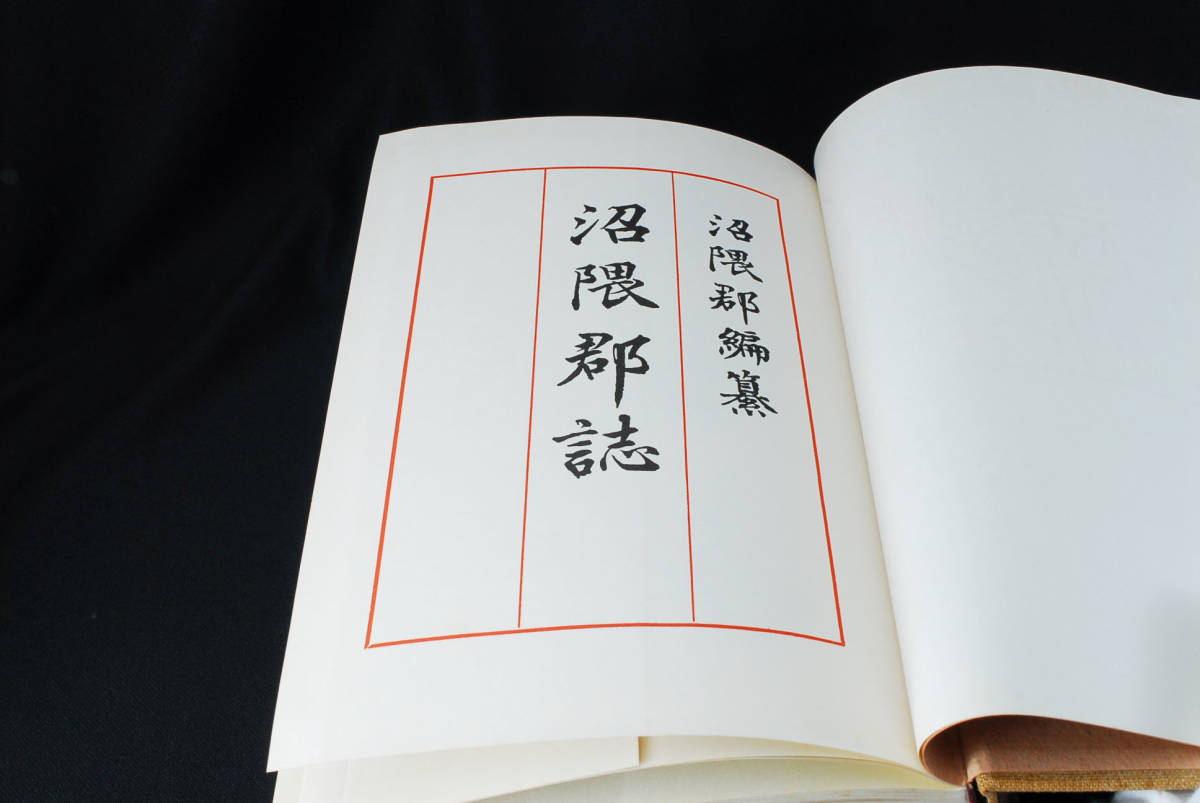 沼隈郡編纂
沼隈郡誌